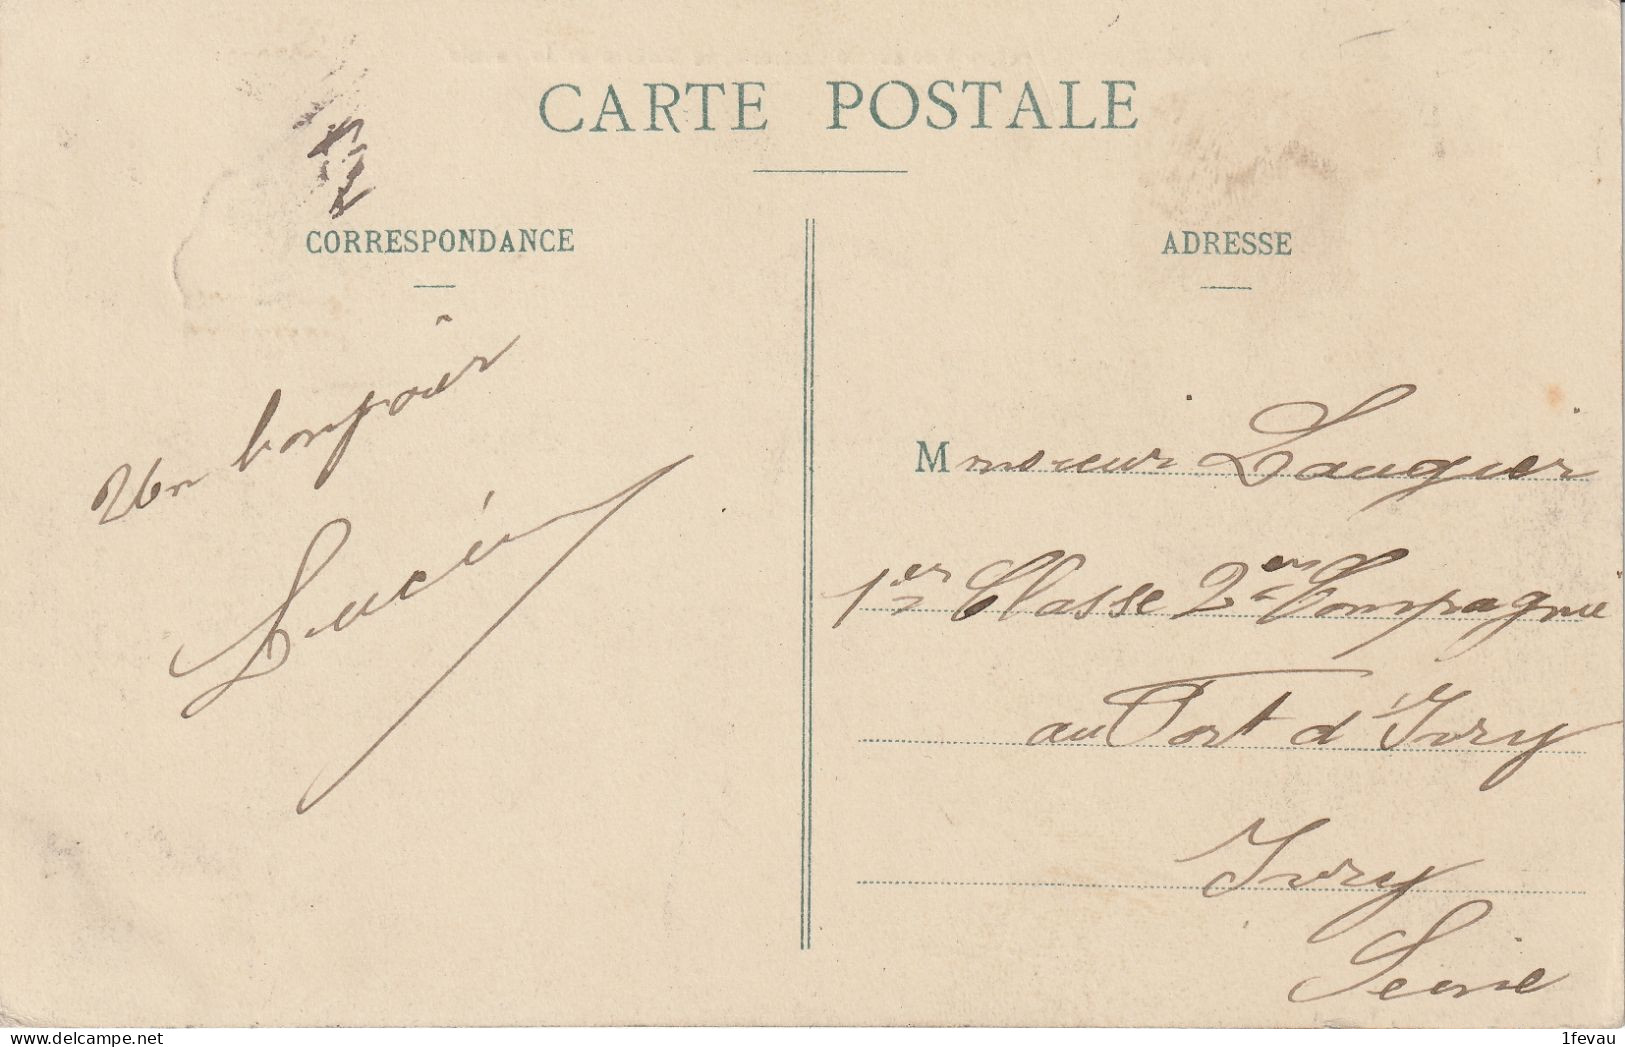 CARTE POSTALE
CORRESPONDANCE
Un bonjour
Lucien
ADRESSE
Monsieur Laugier
1er Classe 2em Compagnie
au Fort d'Ivry
Ivry
Seine
1fevau